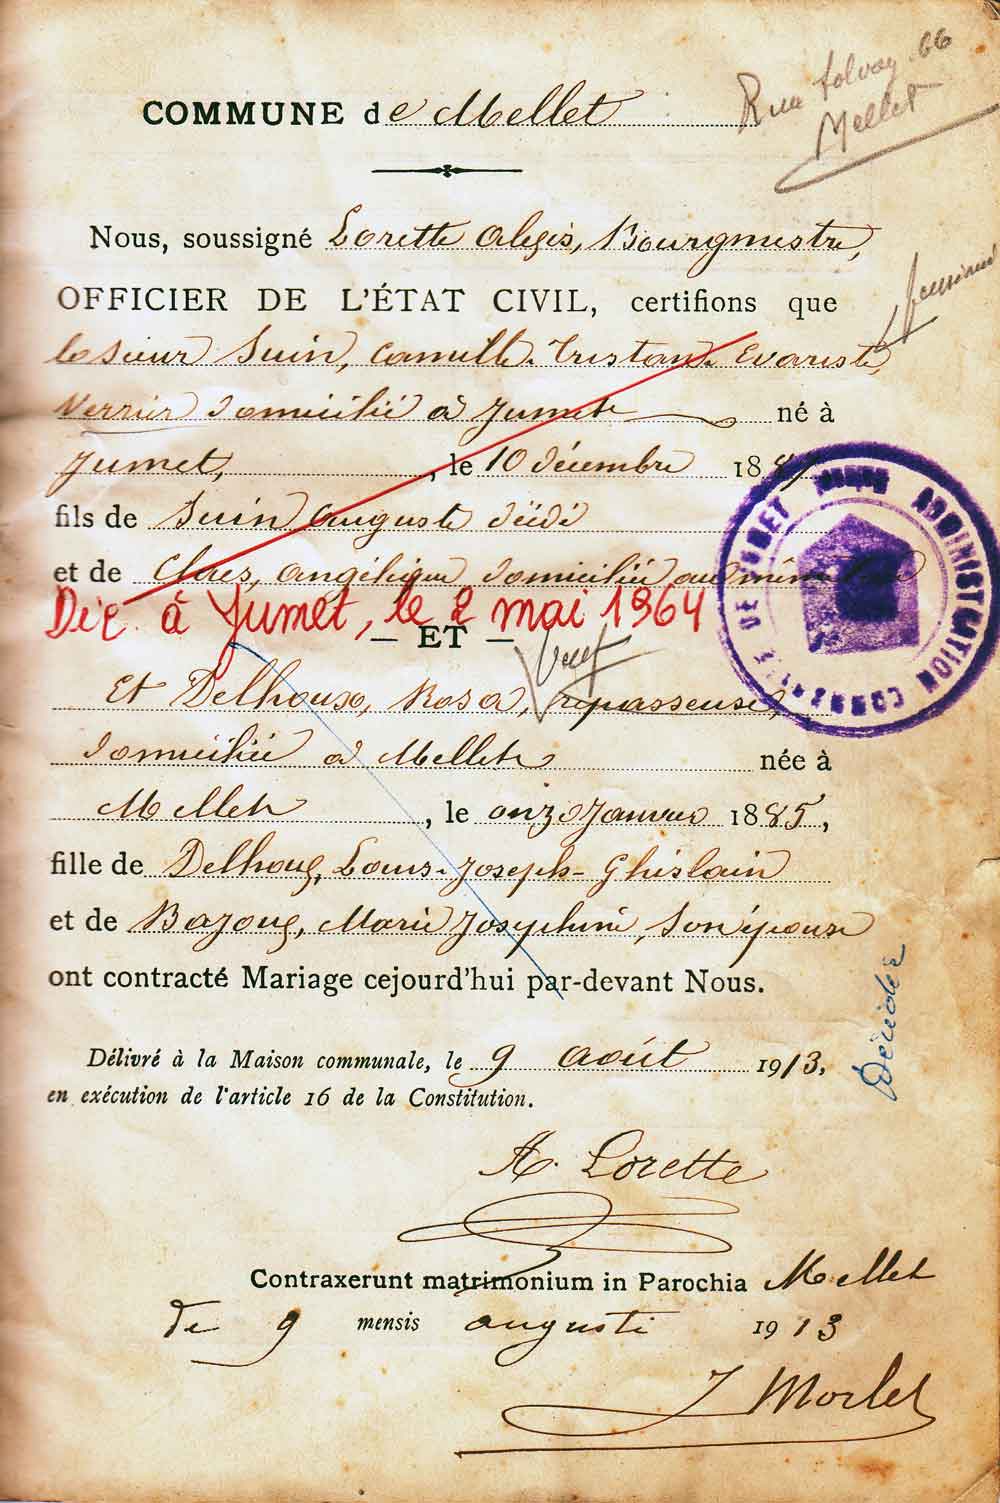 Rue Solvay 66
Mellet
COMMUNE de Mellet
Nous, soussigné Lorette Alexis, Bourgmestre,
OFFICIER DE L'ÉTAT CIVIL, certifions que
le sieur Suin, Camille-Tristan-Evariste,
Verrier domicilié à Jumet né à
Jumet, , le 10 décembre 188
fils de Suin Auguste décédé
et de Claes, Angélique domiciliée au même
Déc. à Jumet, le 2 mai 1964
— ET —
Et Delhoux, Rosa, repasseuse,
domiciliée à Mellet née à
Mellet , le onze Janvier 1885,
fille de Delhoux, Louis-Joseph-Ghislain
et de Bajoux, Marie Josephine, son épouse
ont contracté Mariage cejourd'hui par-devant Nous.
Délivré à la Maison communale, le 9 août 1913,
en exécution de l'article 16 de la Constitution.
Décédée
A. Lorette
Contraxerunt matrimonium in Parochia Mellet
die 9 mensis augusti 1913
J Morlet
ADMINISTRATION COMMUNALE DE JUMET